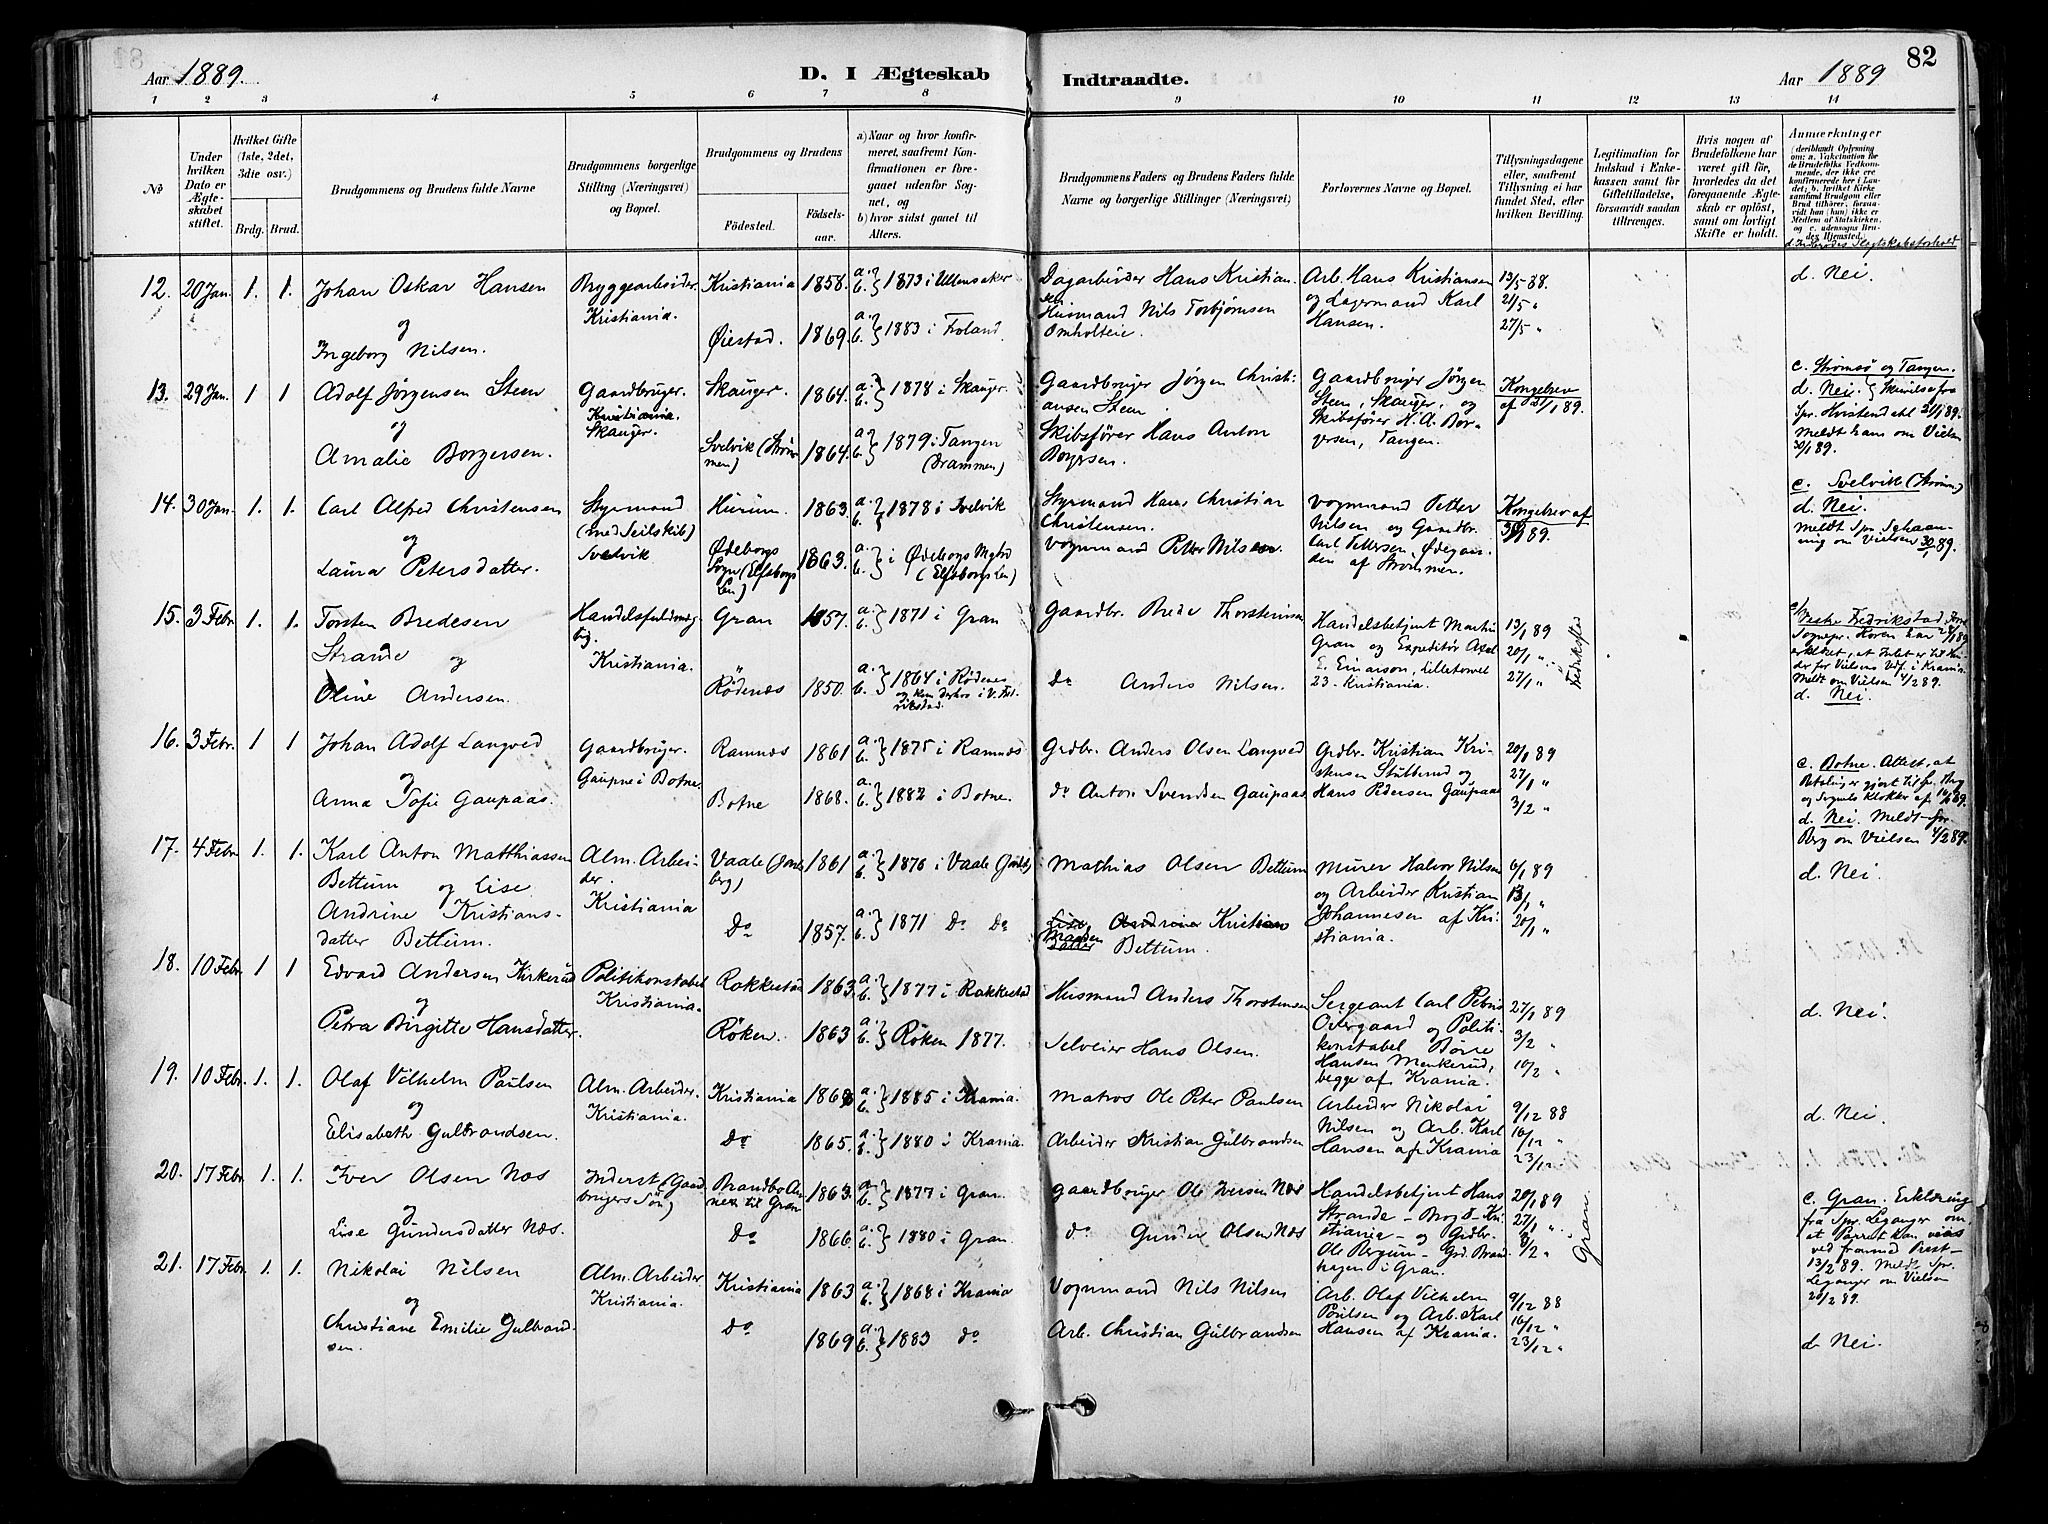 Aar 1889.
D. I Ægteskab
Indtraadte.
Aar 1889
82
1 2 3 4 5 6 7 8 9 10 11 12 13 14
No
Under hvilken Dato er Ægteskabet stiftet.
Hvilket Gifte (1ste, 2det, 3die osv.)
Brdg. Brud.
Brudgommens og Brudens fulde Navne
Brudgommens borgerlige Stilling (Næringsvei) og Bopæl.
Brudgommens og Brudens
Fødested.
Fødselsaar.
a) Naar og hvor konfirmeret, saafremt Konfirmationen er foregaaet udenfor Sognet, og
b) hvor sidst gaaet til Alters.
Brudgommens Faders og Brudens Faders fulde Navne og borgerlige Stillinger (Næringsvei)
Forlovernes Navne og Bopæl.
Tillysningsdagene eller, saafremt Tillysning ei har fundet Sted, efter hvilken Bevilling.
Legitimation for Indskud i Enkekassen samt for Giftetilladelse, forsaavidt saadan tiltrænges.
Hvis nogen af Brudefolkene har været gift før, hvorledes da det foregaaende Ægteskab er opløst, samt om lovligt Skifte er holdt.
Anmerkninger (deriblandt Oplysning om: a. Vakcination for de Brudefolks Vedkommende, der ikke ere konfirmerede her i Landet; b. hvilket Kirkesamfund Brudgom eller Brud tilhører, forsaavidt han (hun) ikke er Medlem af Statskirken, og c. udensogns Brudes Hjemsted.)
12. 20 Jan. 1. 1. Johan Oskar Hansen
og
Ingeborg Nilsen.
Bryggearbeider
Kristiania.
Kristiania 1858. a. b. } 1873 i Ullensaker
Øiestad. 1869. a. b. } 1883 i Froland.
Dagarbeider Hans Kristiansen
Husmand Nils Torbjørnsen
Omholteie.
Arb. Hans Kristiansen
og Lagermand Karl
Hansen.
13/5 88.
21/5 "
27/5 "
d. Nei.
13. 29 Jan. 1 1 Adolf Jørgensen Steen
og
Amalie Borgersen.
Gaardbruger.
Kristiania.
Skauger.
Skauger. 1864. a. b. } 1878 i Skauger.
Svelvik (Strømmen) 1864. a. b. } 1879 i Tangen
(Drammen)
Gaardbruger Jørgen Christiansen Steen
Skibsfører Hans Anton
Borgersen.
Gaardbruger Jørgen
Steen, Skauger, og
Skibsfører H. A. Borgersen, Tangen.
Kongebrev
af 21/1 89.
c. Strømsø og Tangen.
d. Nei
Meldt ham om Vielsen
30/1 89.
14. 30 Jan. 1. 1. Carl Alfred Christensen
og
Laura Petersdatter.
Styrmand
(med Seilskib)
Svelvik
Hurum. 1863. a. b. } 1878 i Svelvik
Ødeborgs
Sogn (Elfsborgs
Len) 1863. a. b. } i Ødeborgs
(Elfsborgs Len)
Styrmand Hans Christian
Christensen.
Vognmand Petter Nilsen.
Vognmand Petter
Nilsen og Gaardbr.
Carl Pettersen, Ødegaarden af Strømmen.
Kongebrev af
c. Svelvik (Strømm.)
d. Nei.
15. 3 Febr. 1. 1. Torsten Bredesen
Strande
og
Oline Andersen.
Handelsfuldmægtig.
Kristiania.
Gran 1857. a. b. } 1871 i Gran
Rødenæs 1850. a. b. } 1864 i Rødenes
Gaardbr. Brede Thorsteinsen
Do Anders Nilsen.
Handelsbetjent Martin
Gran og Expeditør Axel
E. Einarson, Lilletorvet
23 - Kristiania.
13/1 89
20/1 "
27/1 "
c. Vestre Fredrikstad.
Meldt om Vielsen 4/2 89.
d. Nei
16. 3 Febr. 1 1 Johan Adolf Langved
og
Anna Sofie Gaupaas.
Gaardbruger.
Gaupne i Botne.
Ramnæs 1861 a. b. } 1875 i Ramnæs
Botne 1868. a. b. } 1882 i Botne.
Grdbr. Anders Olsen Langved
do Anton Svendsen Gaupaas
Grdbr. Kristian Kristensen Stubberud og
Hans Pedersen Gaupaas
20/1 89
27/1 "
3/2 "
c. Botne. Attest, at
d. Nei. Meldt Spr.
Berg om Vielsen 4/2 89.
17. 4 Febr 1. 1. Karl Anton Matthiassen
Bettum og Lise
Andrine Kristiansdatter Bettum.
Alm. Arbeider.
Kristiania
Vaale 1861 a. b. } 1876 i Vaale
Do 1857. a. b. } 1871 Do Do
Mathias Olsen Bettum
Kristian
Bettum.
Murer Halvor Nilsen
og Arbeider Kristian
Johannesen af Kristiania.
6/1 89
13/1 "
20/1 "
d. Nei.
18. 10 Febr. 1 1 Edvard Andersen Kirkerud
og
Petra Birgitte Hansdatter.
Politikonstabel
Kristiania.
Rakkestad 1863. a. b. } 1877 i Rakkestad
Røken. 1863 a. b. } Røken 1877.
Husmand Anders Thorstensen
Selveier Hans Olsen.
Sergeant Carl Petrus
Overgaard og Politikonstabel Børre
Hansen Menkerud,
begge af Krania.
27/1 89
3/2 "
10/2 "
d. Nei.
19. 10 Febr. 1. 1. Olaf Vilhelm Paulsen
og
Elisabeth Gulbrandsen.
Alm. Arbeider.
Kristiania.
Kristiania a. b. } 1885 i Krania.
Do 1865. a. b. } 1880 i Krania.
Matros Ole Peter Paulsen
Arbeider Kristian Gulbrandsen
Arbeider Nikolai
Nilsen og Arb. Karl
Hansen af Krania
9/12 88
16/12 "
23/12 "
d. Nei.
20. 17 Febr. 1. 1. Iver Olsen Næs
og
Lise Gundersdatter Næs.
Inderst (Gaardbrugers Søn)
Brandbo Annex til Gran 1863. a. b. } 1877 i Gran.
Do 1866. a. b. } 1880 i Gran.
Gaardbruger Ole Iversen Næs
do Gunder Olsen Næs
Handelsbetjent Hans
Strande - Kristiania - og Grdbr.
Ole Bergum - Grd. Brandhagen i Gran.
20/1 89
27/1 "
3/2 "
Gran.
c. Gran. Erklæring
fra Spr. Leganger om,
at Parret kan vies
ved fremmed Prest -
13/2 89. Meldt Spr.
Leganger om Vielsen
20/2 89.
21. 17 Febr. 1. 1. Nikolai Nilsen
og
Christiane Emilie Gulbrandsen.
Alm. Arbeider
Kristiania.
Kristiania 1863 a. b. } 1868 i Krania
Do 1869 a. b. } 1883 do
Vognmand Nils Nilsen
Arb. Christian Gulbrandsen
Arb. Olaf Vilhelm
Poulsen og Arb. Karl
Hansen af Krania.
9/12 88
16/12 "
23/12 "
d. Nei.